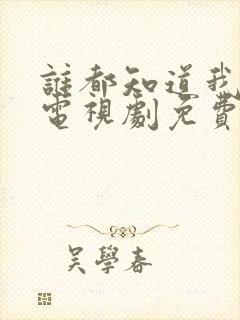 誰都知道我
電視劇免費
吳學春